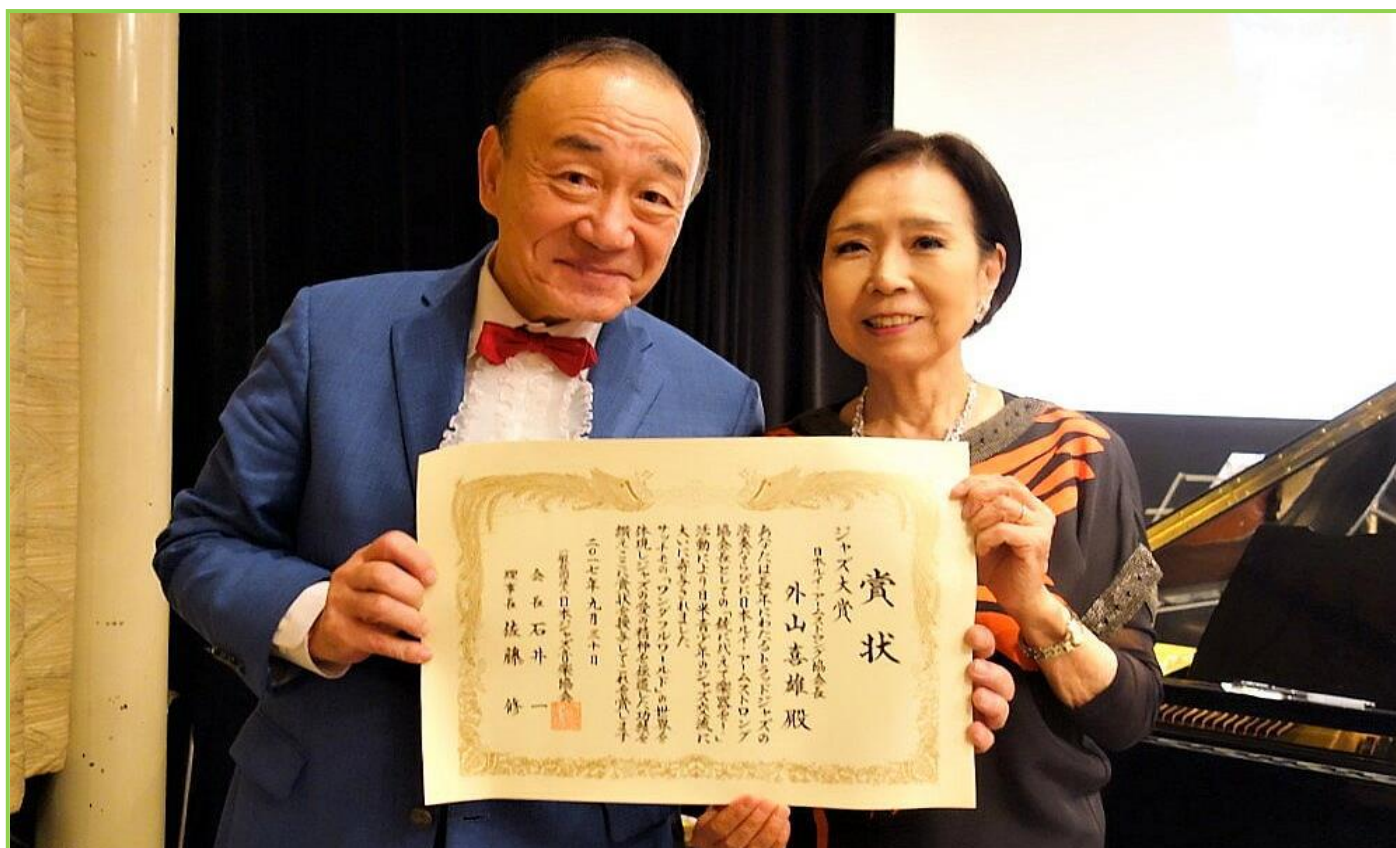 賞状
ジャズ大賞
日本ルイ・アームストロング協会会長
外山喜雄殿
あなたは長年にわたるトラッドジャズの
演奏ならびに日本ルイ・アームストロング
協会会長としての「銃に代えて楽器を！」
活動により日米青少年のジャズ交流に
大いに寄与されました
サッチモの「ワンダフルワールド」の世界を
体現しジャズの愛の精神を
讃えここに賞状を授与してこれを賞します
二〇一七年九月三十日
日本ジャズ音楽協会
会長 石井 一
理事長 佐藤 修